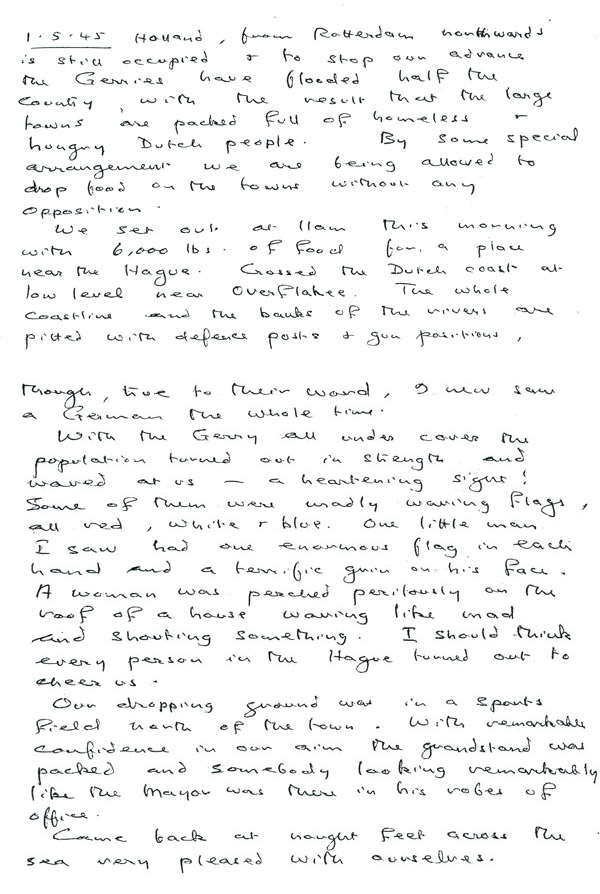 1.5.45 Holland, from Rotterdam northwards
is still occupied & to stop our advance
the Gerries have flooded half the
country, with the result that the large
towns are packed full of homeless &
hungry Dutch people. By some special
arrangement we are being allowed to
drop food on the towns without any
opposition.
We set out at 11am this morning
with 6,000 lbs. of food for a place
near the Hague. Crossed the Dutch coast at
low level near Overflakee. The whole
coastline and the banks of the rivers are
pitted with defence posts & gun positions,
though, true to their word, I never saw
a German the whole time.
With the Gerry all under cover the
population turned out in strength and
waved at us — a heartening sight!
Some of them were madly waving flags,
all red, white & blue. One little man
I saw had one enormous flag in each
hand and a terrific grin on his face.
A woman was perched perilously on the
roof of a house waving like mad
and shouting something. I should think
every person in the Hague turned out to
cheer us.
Our dropping ground was in a sports
field north of the town. With remarkable
confidence in our aim the grandstand was
packed and somebody looking remarkably
like the Mayor was there in his robes of
office.
Came back at nought feet across the
sea very pleased with ourselves.